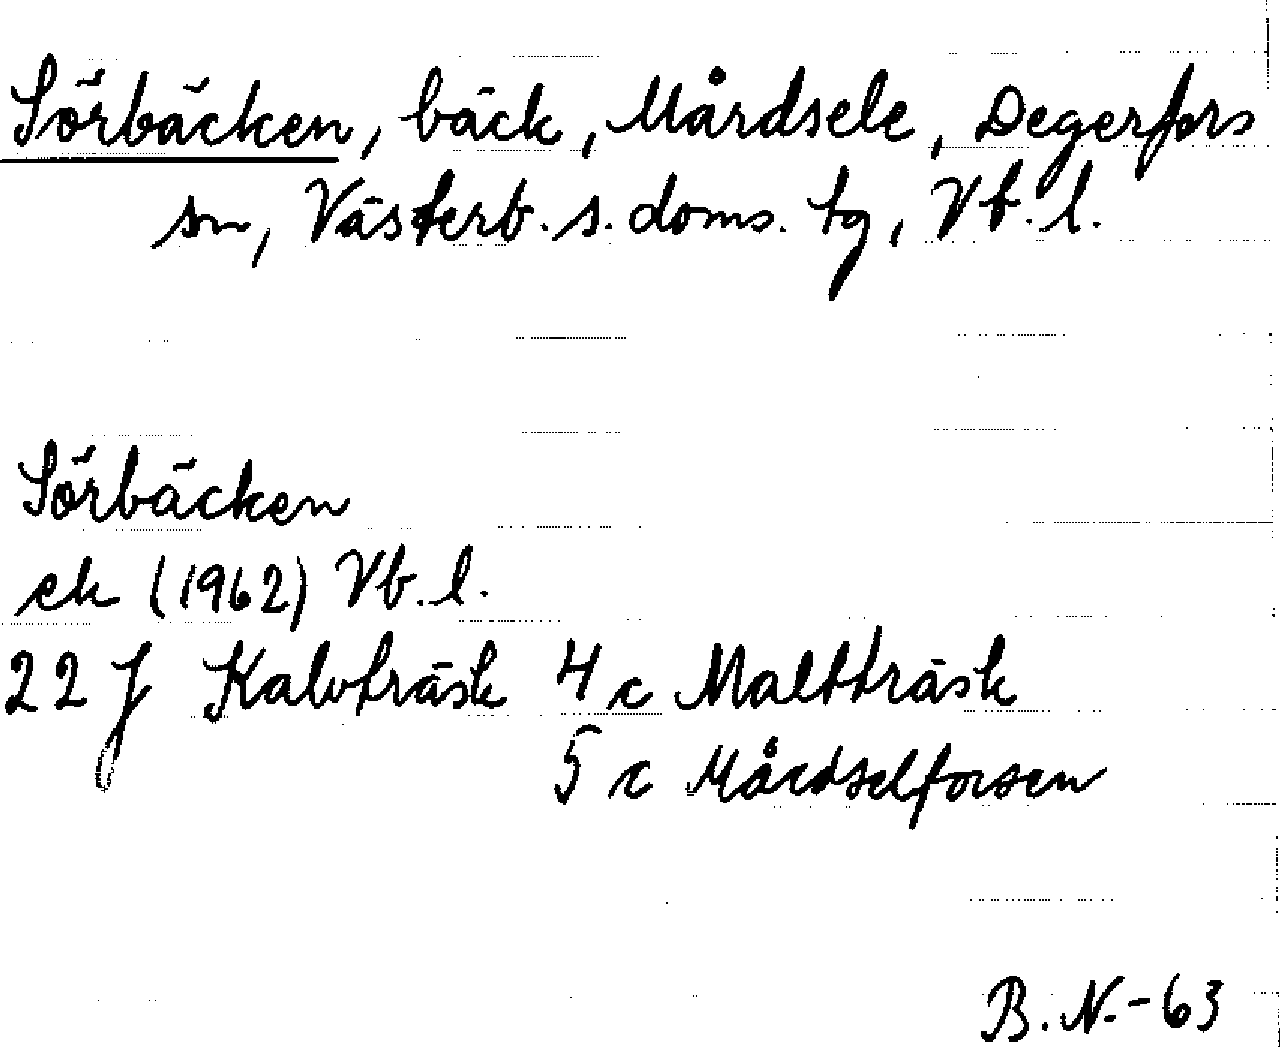 Sörbäcken, bäck, Mårdsele, Degerfors
sn, Västerb. s. doms. tg, Vb. l.
Sörbäcken
ek (1962) Vb. l.
22 J Kalvträsk 4 c Maltträsk
5 c Mårdselforsen
B. N. - 63